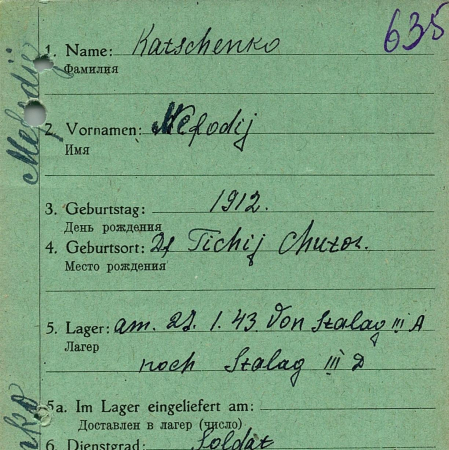 635
1. Name: Katschenko
Фамилия
2. Vornamen: Mefodij
Имя
3. Geburtstag: 1912.
День рождения
4. Geburtsort: Tichij Chutor.
Место рождения
5. Lager: am. 1.43 Von Stalag III A
Лагер
noch Stalag III D
5a. Im Lager eingeliefert am:
Доставлен в лагер (число)
6. Dienstgrad: Soldat
Mefodij